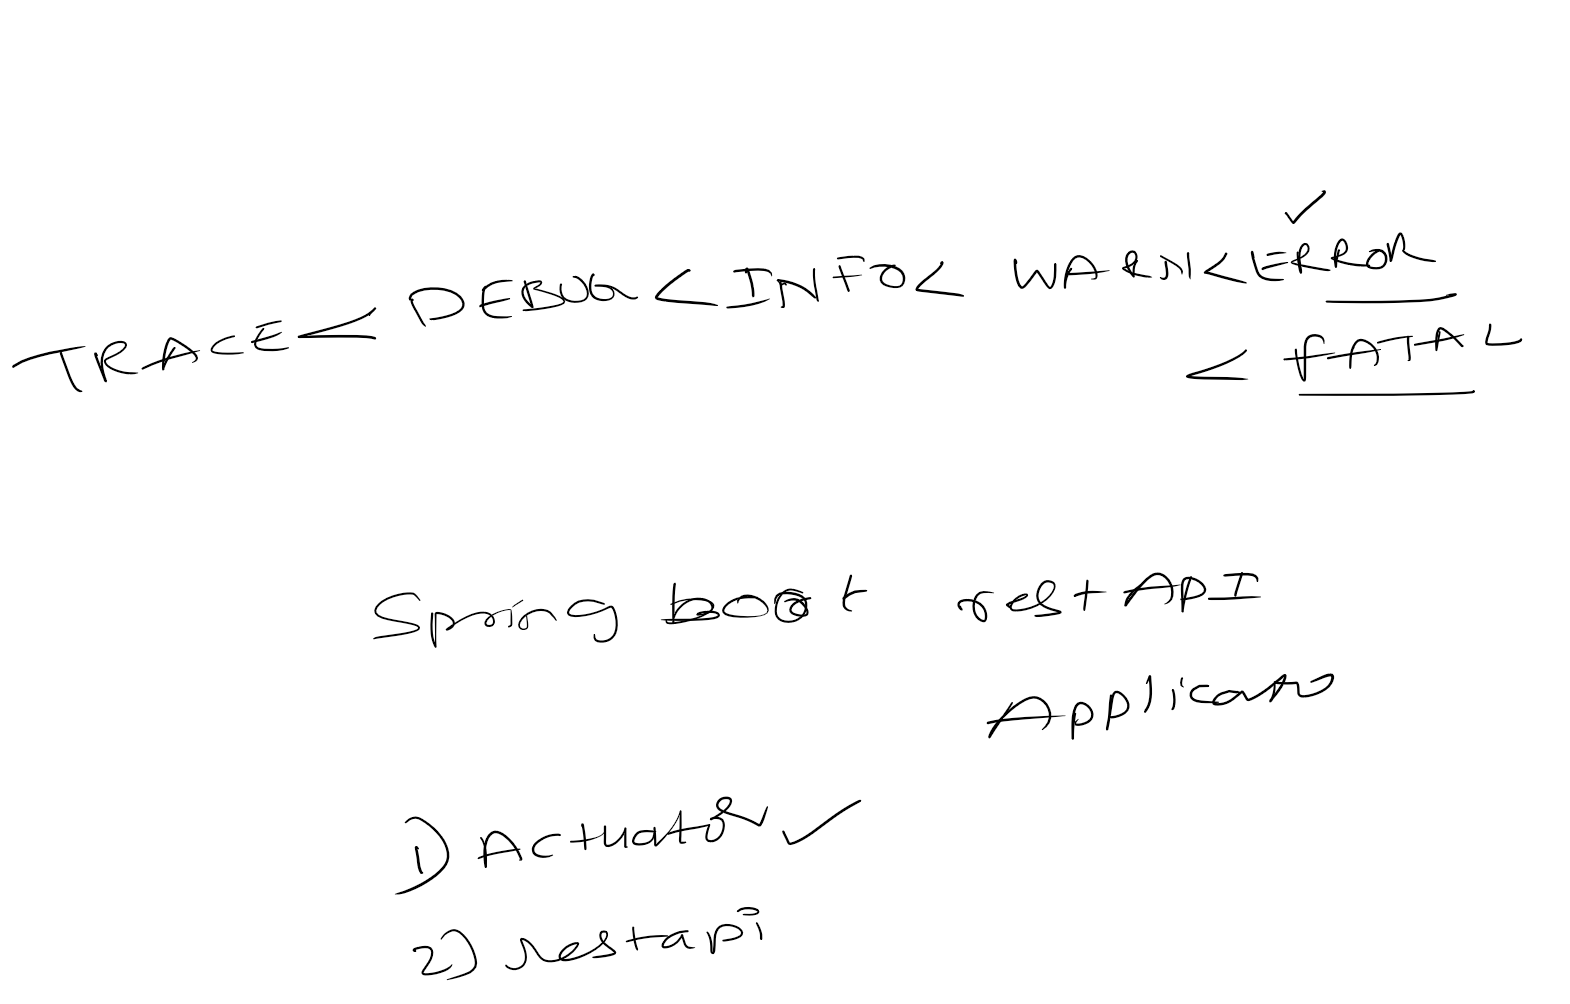 TRACE < DEBUG < INFO < WARN < ERROR
< FATAL
Spring boot rest API
Applicato
1) Actuator
2) restapi